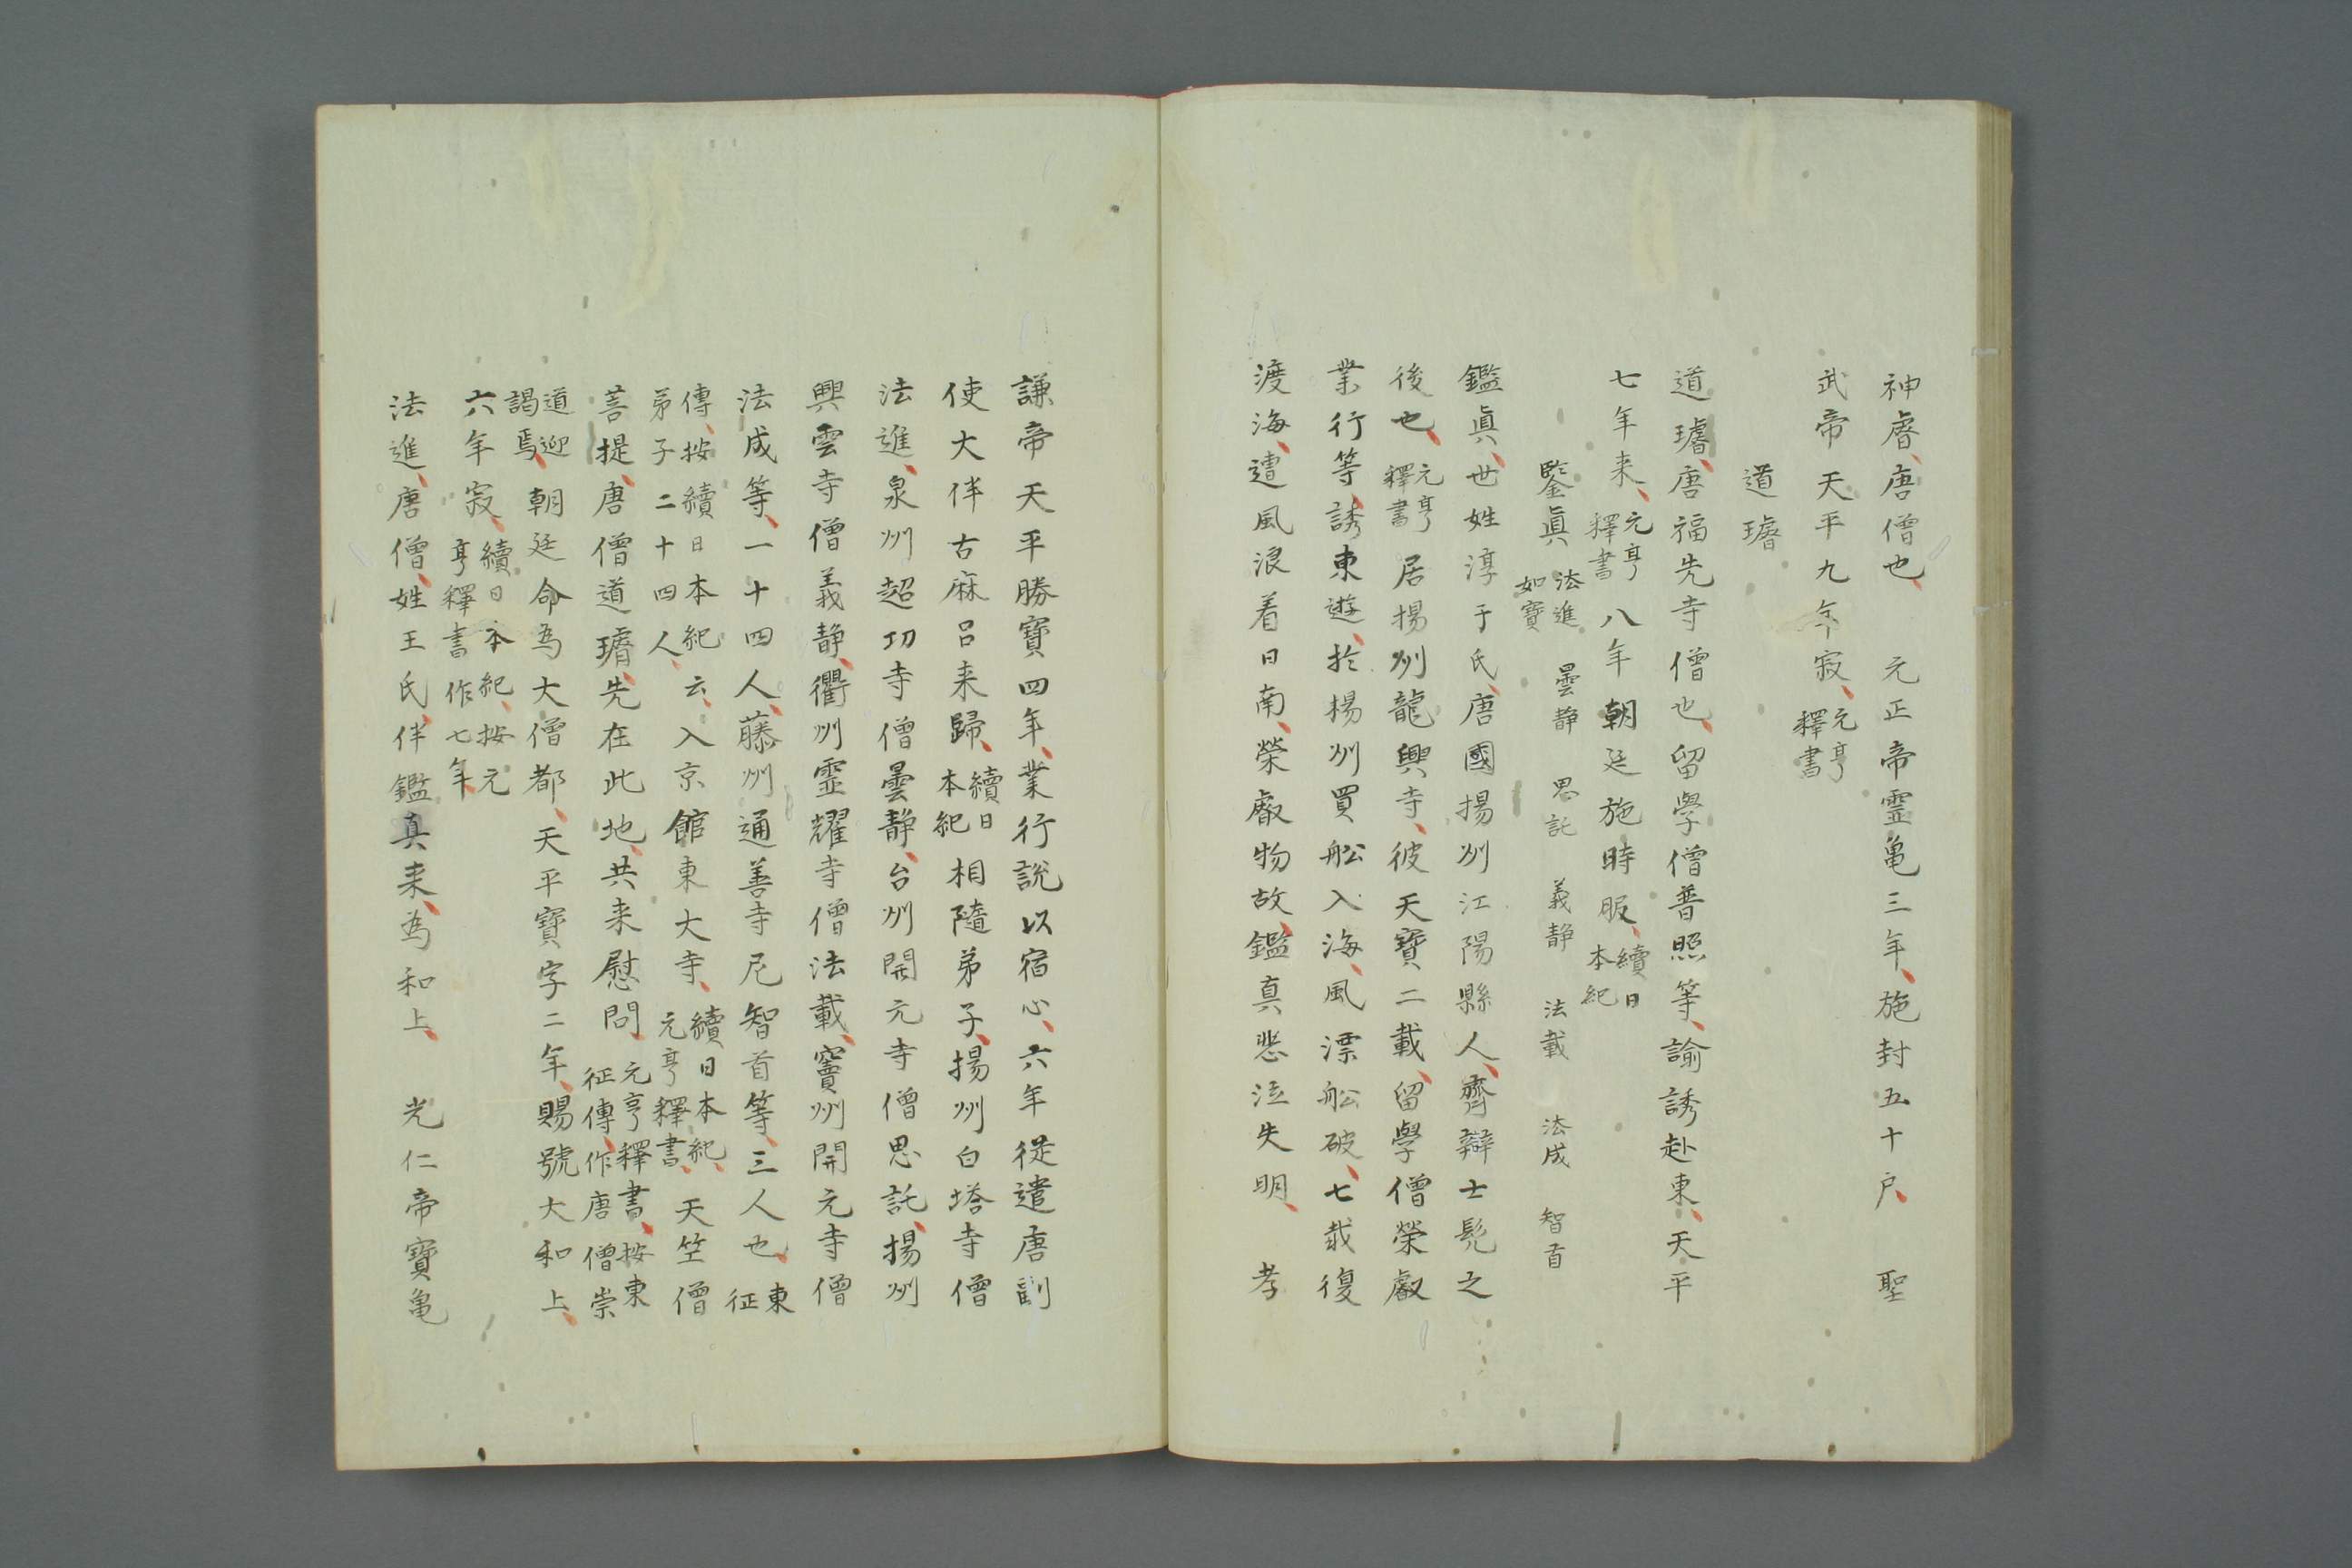 神睿、唐僧也、　元正帝靈亀三年、施封五十戶、　聖
武帝天平九年寂、元亨釋書
道璿
道璿、唐福先寺僧也、留學僧普照等、諭誘赴東、天平
七年来、元亨釋書八年朝廷施時服、續日本紀
鑒眞　法進　如寶　曇静　思託　義静　法載　法成　智首
鑑眞、世姓淳于氏、唐國揚州江陽縣人、齊辯士髠之
後也、元亨釋書居揚州龍興寺、彼天寶二載、留學僧榮叡
業行等、誘東遊、於楊州買舩入海、風漂舩破、七載復
渡海、遭風浪着日南、榮叡物故、鑑真悲泣失明、　孝
謙帝天平勝寶四年、業行說以宿心、六年從遣唐副
使大伴古麻呂来歸、續日本紀相隨弟子、揚州白塔寺僧
法進、泉州超功寺僧曇静、台州開元寺僧思託、揚州
興雲寺僧義静、衢州霊耀寺僧法載、竇州開元寺僧
法成等、一十四人、藤州通善寺尼智首等、三人也、東征
傳、按續日本紀云、弟子二十四人、入京館東大寺、續日本紀、元亨釋書、天竺僧
菩提、唐僧道璿、先在此地、共来慰問、元亨釋書、按東征傳、作唐僧崇
道迎謁焉、朝廷命為大僧都、天平寶字二年、賜號大和上、
六年寂、續日本紀、按元亨釋書作七年、
法進、唐僧、姓王氏、伴鑑真来、為和上、　光仁帝寶亀